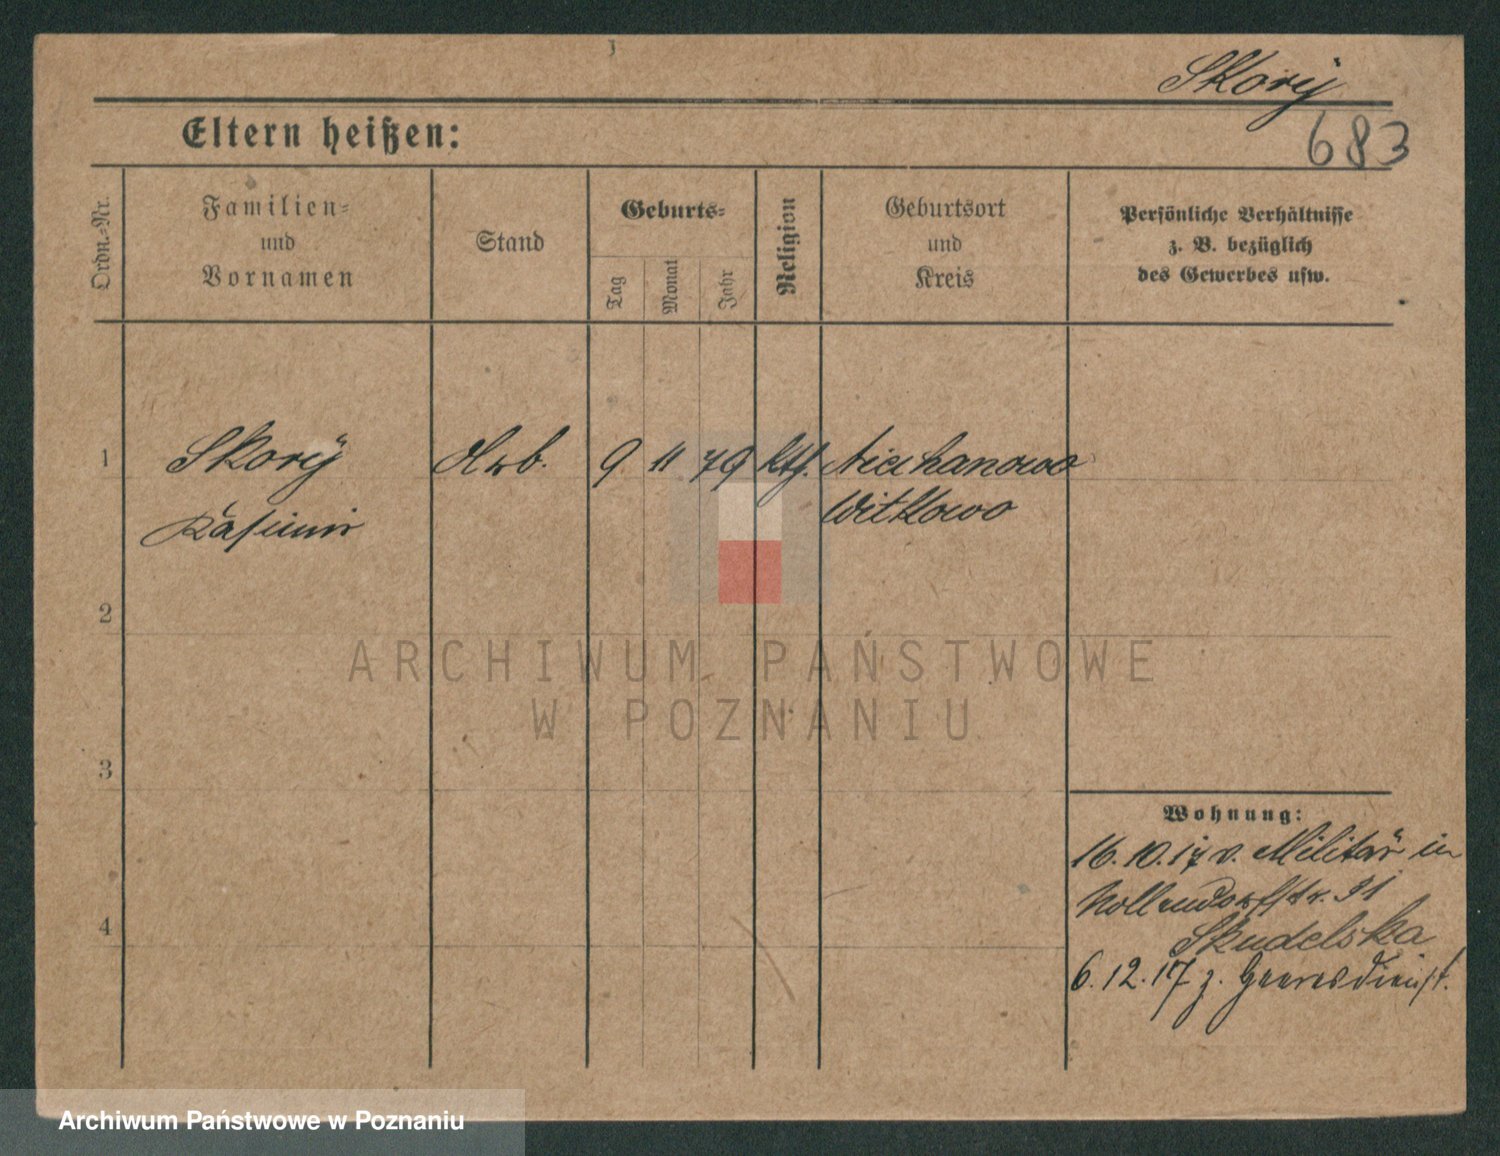 Skory
Eltern heißen:
683
Ordn.-Nr.
Familien-
und
Vornamen
Stand
Geburts-
Tag
Monat
Jahr
Religion
Geburtsort
und
Kreis
Persönliche Verhältnisse
z. B. bezüglich
des Gewerbes usw.
1
Skory Arb. 9 11 79 kth. Niechanowo
Kasimir Witkowo
2
ARCHIWUM PAŃSTWOWE
W POZNANIU
3
Wohnung:
16.10.17 v. Militär in
Nollendorfstr. 31
Skudelska
4
6.12.17 z. Heeresdienst.
Archiwum Państwowe w Poznaniu